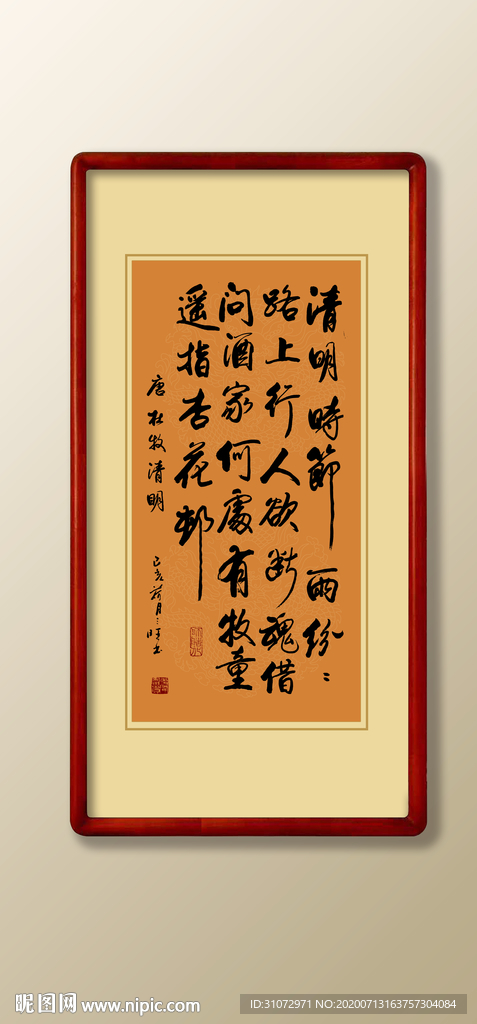 清明時節雨紛〻
路上行人欲断魂借
问酒家何處有牧童
遥指杏花邨
唐杜牧清明
己亥荷月
昵图网 www.nipic.com
ID:31072971 NO:20200713163757304084